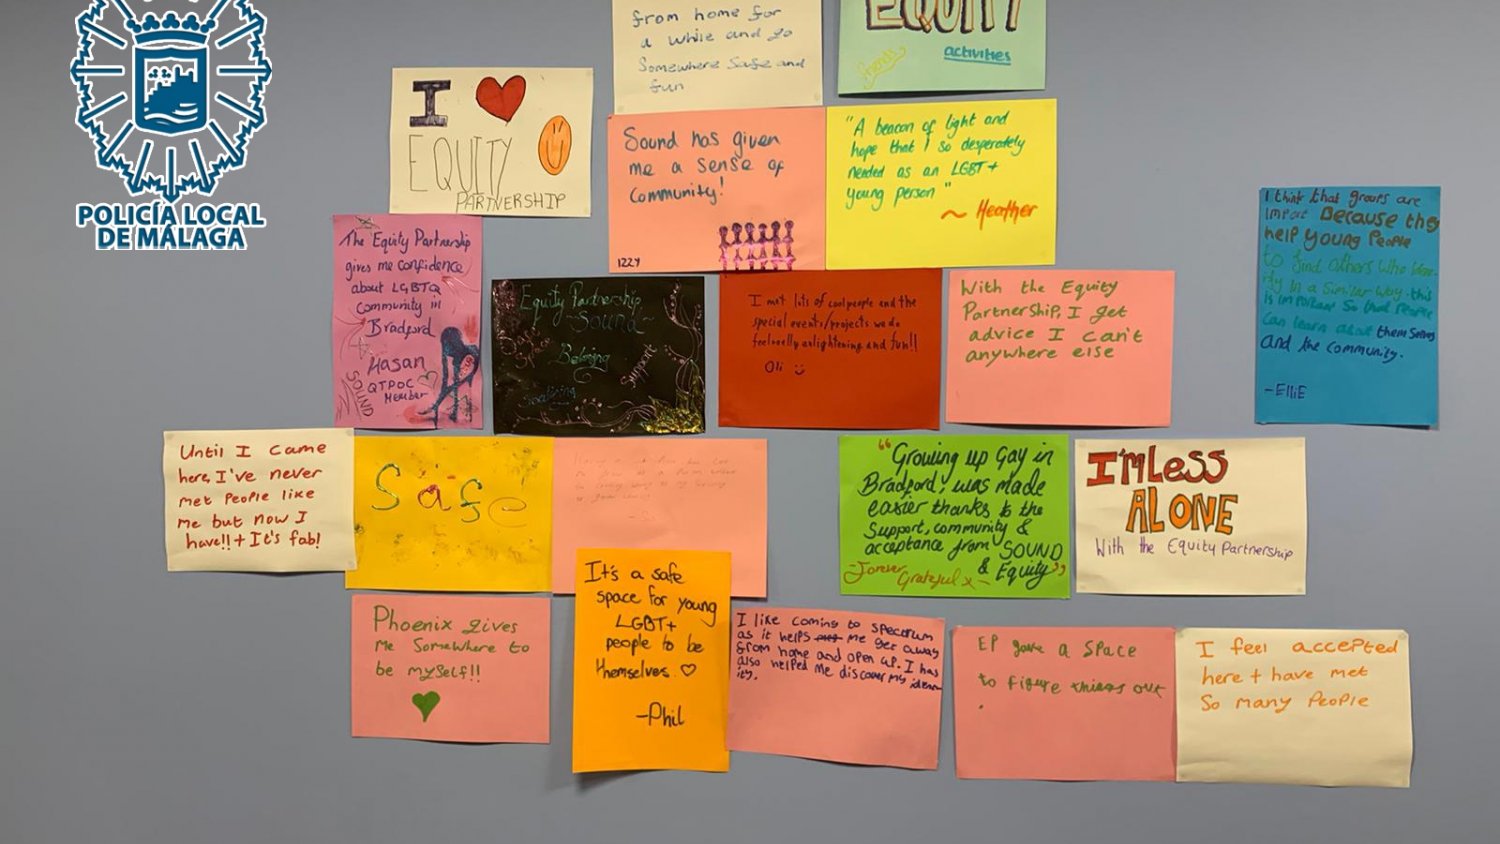 POLICÍA LOCAL
DE MÁLAGA
from home for
a while and go
Somewhere Safe and
fun
EQUITY
activities
I
EQUITY
PARTNERSHIP
Sound has given
me a sense of
Community!
IZZY
"A beacon of light and
hope that I so desperately
needed as an LGBT+
young person"
~ Heather
I think that groups are
Because they
help young People
to find others who iden-
tify in a Similar way. this
is important So that People
Can learn about themselves
and the community.
-ElliE
The Equity Partnership
gives me confidence
about LGBTQ
Community in
Bradford
Hasan
QTPOC
Member
SOUND
Equity Partnership
~Sound~
Safe
Space
Belonging
Support
Socialising
I met lots of cool people and the
special events/projects we do
feel really enlightening and fun!!
Oli
With the Equity
Partnership, I get
advice I can't
anywhere else
Until I came
here, I've never
met people like
me but now I
have!! + It's fab!
Safe
"Growing up Gay in
Bradford, was made
easier thanks to the
Support, community &
acceptance from SOUND
& Equity"
-Forever
Grateful x-
I'M LESS
ALONE
With the Equity Partnership
Phoenix gives
me Somewhere to
be myself!!
It's a safe
space for young
LGBT+
people to be
themselves.
-Phil
I like coming to spectrum
as it helps me get away
from home and open up. I has
also helped me discover my iden-
ity.
EP gave a space
to figure things out
.
I feel accepted
here + have met
So many People